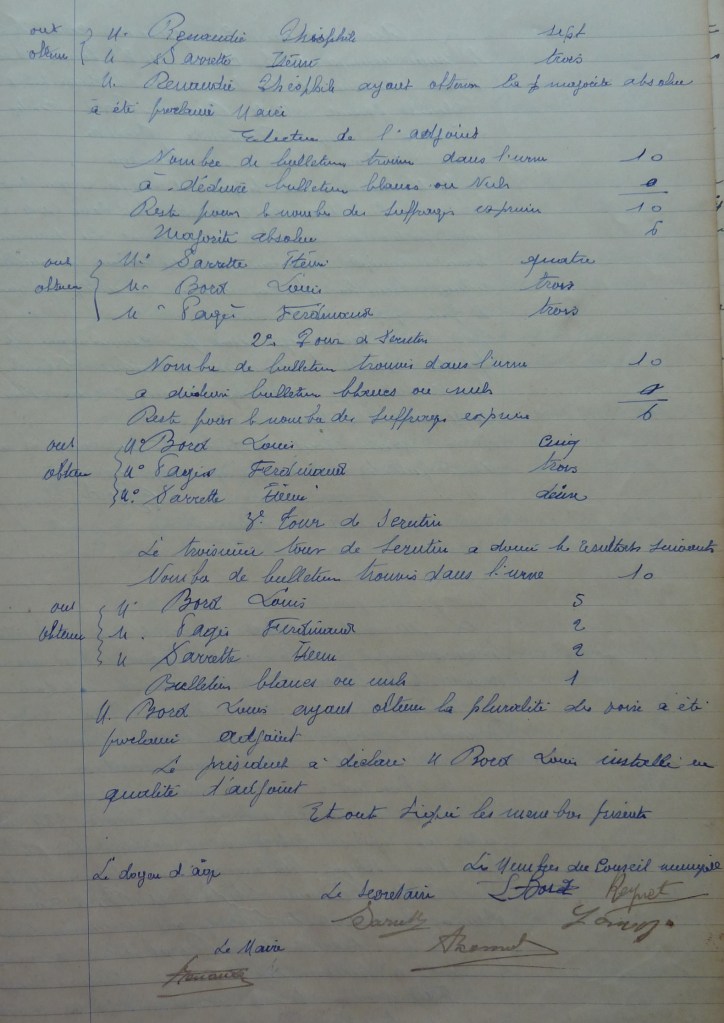 ont M. Renaudie Théophile sept
obtenu M Sarrette Rémi trois
M. Renaudie Théophile ayant obtenu la majorité absolue
à été proclamé Maire
Election de l'adjoint
Nombre de bulletins trouvés dans l'urne 10
à déduire bulletins blancs ou Nuls 0
Reste pour le nombre des suffrages exprimés 10
Majorité absolue 6
ont M. Sarrette Rémi quatre
obtenu M. Bord Louis trois
M. Pagès Ferdinand trois
2e Tour de Scrutin
Nombre de bulletins trouvés dans l'urne 10
a déduire bulletins blancs ou nuls 0
Reste pour le nombre des suffrages exprimés 6
ont M. Bord Louis cinq
obtenu M. Pagès Ferdinand trois
M. Sarrette Rémi deux
3e Tour de Scrutin
Le troisième tour de Scrutin a donné les résultats suivants
Nombre de bulletins trouvés dans l'urne 10
ont M. Bord Louis 5
obtenu M. Pagès Ferdinand 2
M Sarrette Rémi 2
Bulletins blancs ou nuls 1
M. Bord Louis ayant obtenu la pluralité des voix à été
proclamé adjoint
Le président à déclaré M Bord Louis installé en
qualité d'adjoint
Et ont Signé les membres présents
Le doyen d'âge Les Membres du Conseil municipal
Le Secrétaire L. Bord
Le Maire